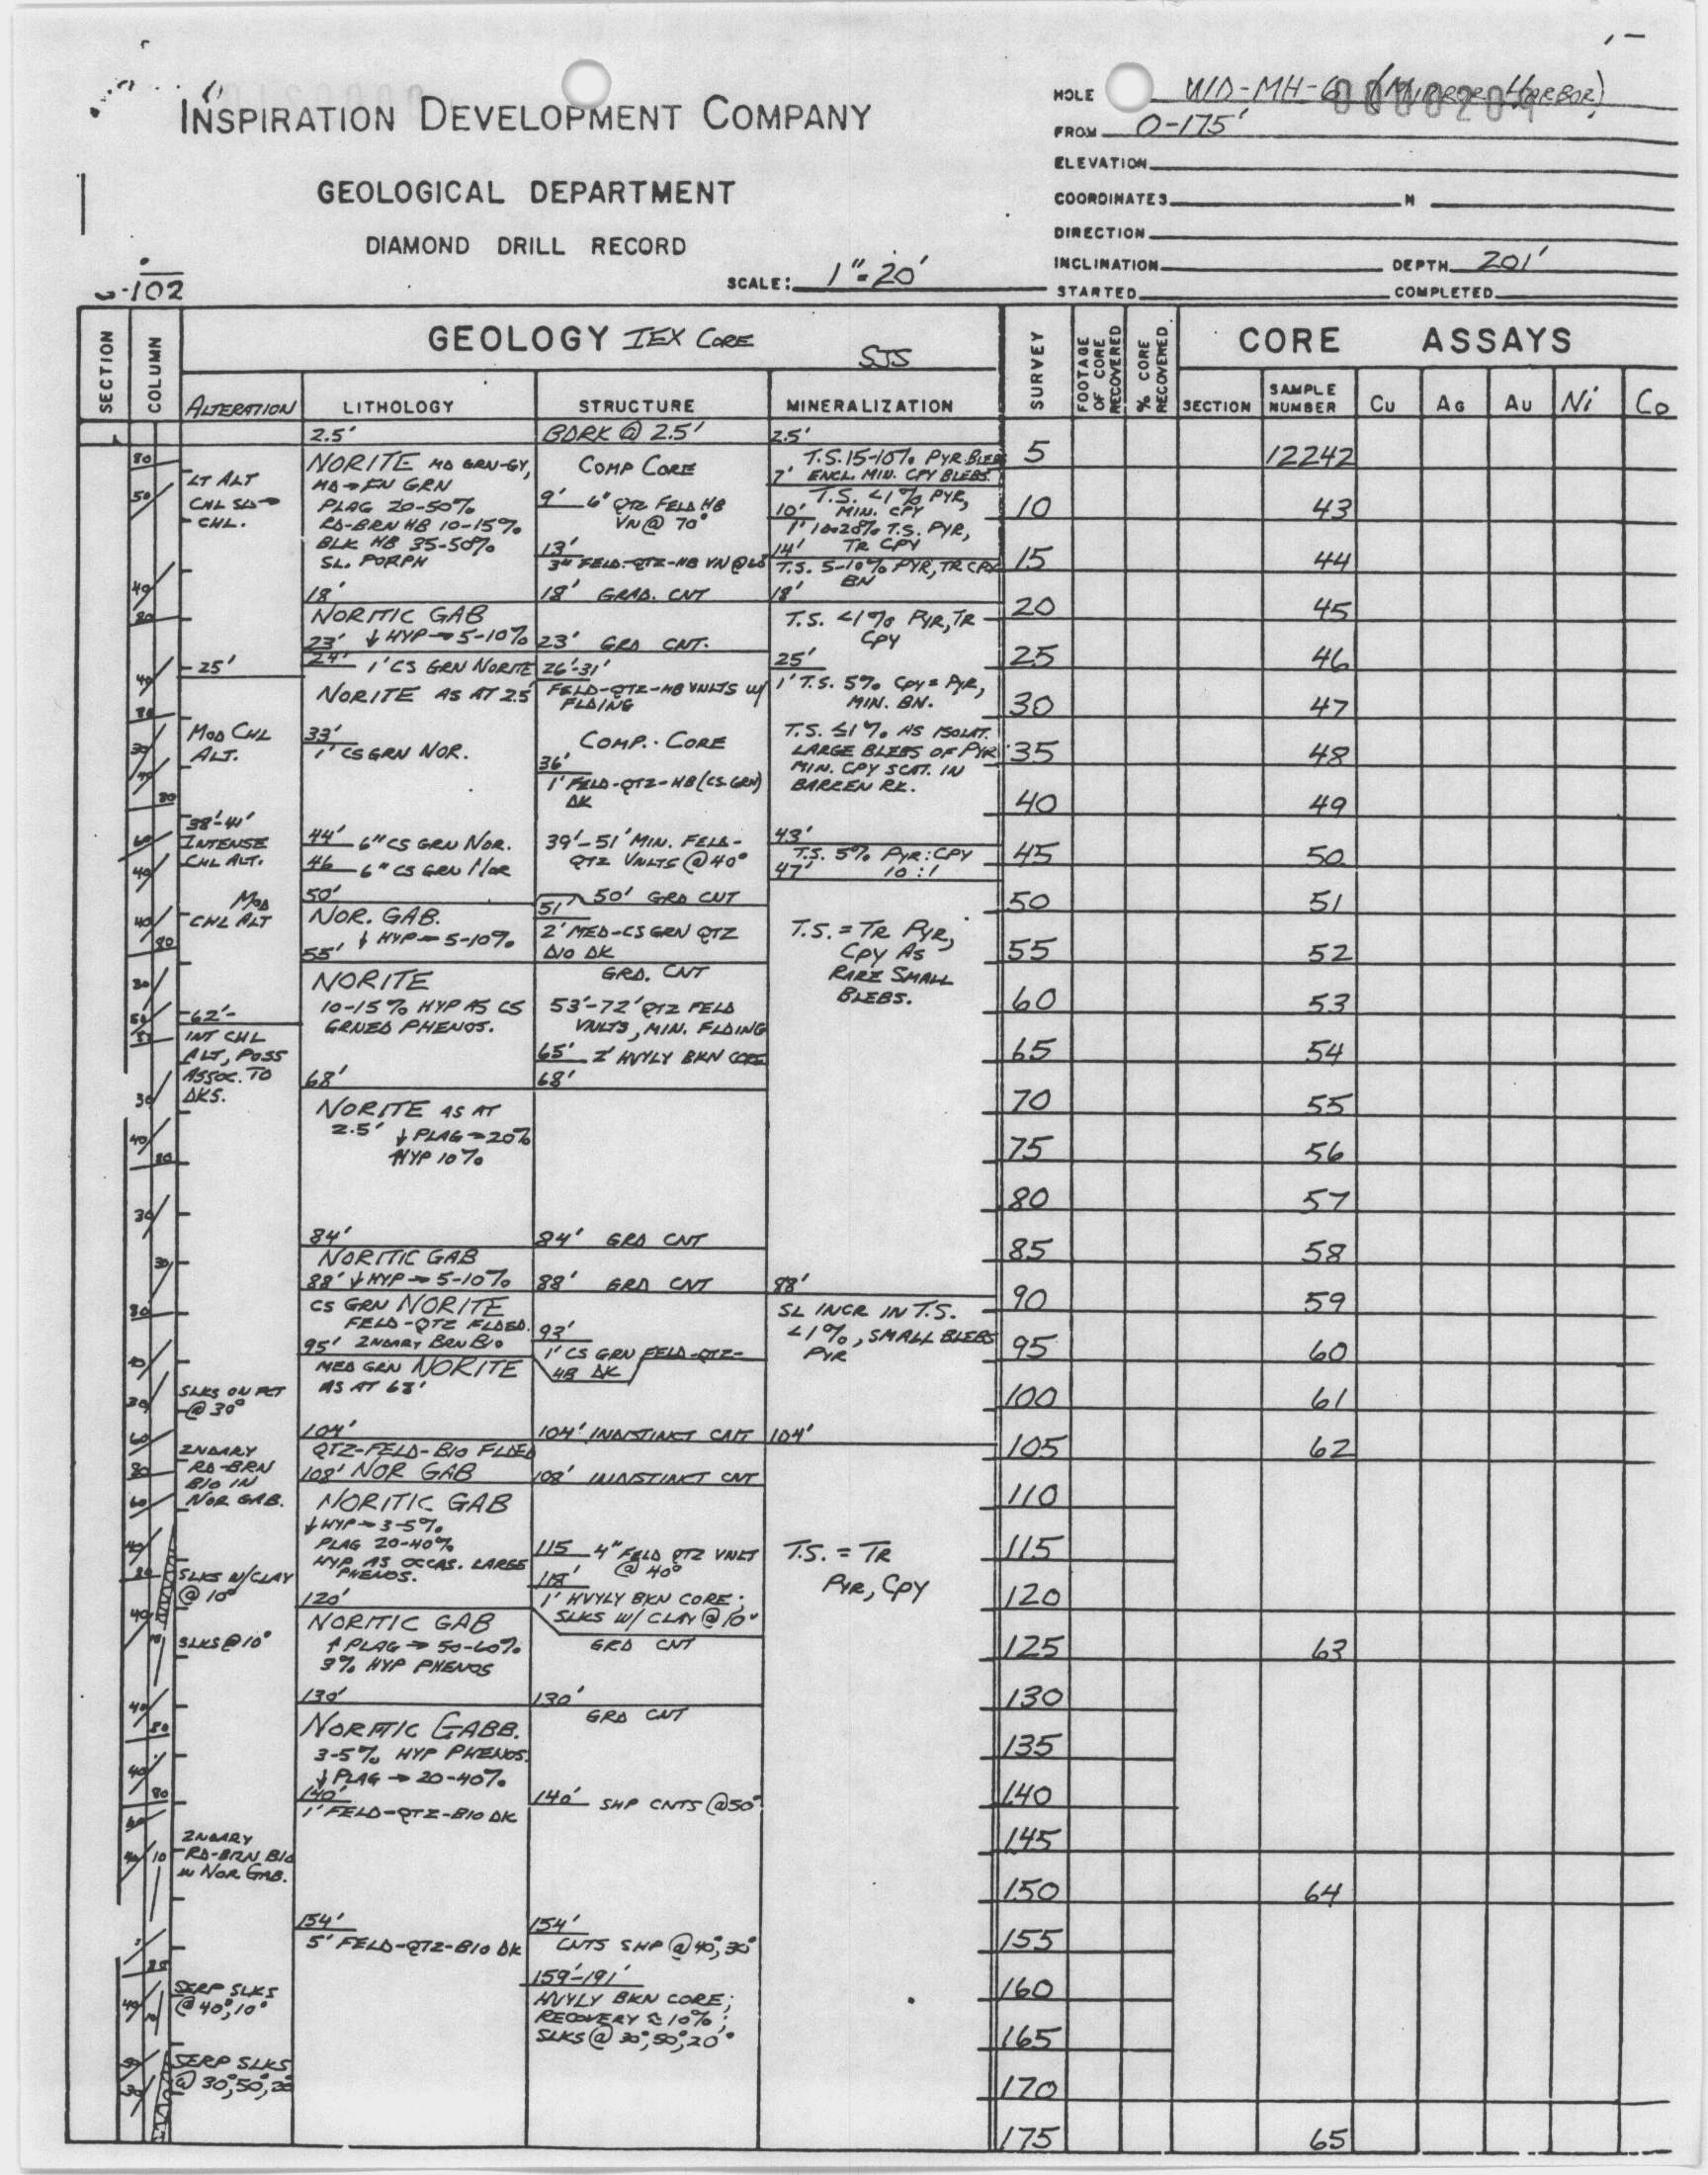 INSPIRATION DEVELOPMENT COMPANY
GEOLOGICAL DEPARTMENT
DIAMOND DRILL RECORD
SCALE: 1"=20'
-102
HOLE WD-MH-6 (MIRROR HARBOR)
0000209
FROM 0-175'
ELEVATION
COORDINATES N
DIRECTION
INCLINATION DEPTH 201'
STARTED COMPLETED
SECTION
COLUMN
GEOLOGY IEX CORE
SJS
SURVEY
FOOTAGE OF CORE RECOVERED
% CORE RECOVERED
CORE ASSAYS
ALTERATION LITHOLOGY STRUCTURE MINERALIZATION
SECTION SAMPLE NUMBER Cu AG AU Ni Co
LT ALT
CHL SLD→
CHL.
25'
MOD CHL
ALT.
38'-41'
INTENSE
CHL ALT.
MOD
CHL ALT
62'-
INT CHL
ALT, POSS
ASSOC. TO
DKS.
SLKS ON FCT
@ 30°
2NDARY
RD-BRN
BIO IN
NOR GAB.
SLKS W/CLAY
@ 10°
SLKS @ 10°
2NDARY
RD-BRN BIO
IN NOR GAB.
SERP SLKS
@ 40°, 10°
SERP SLKS
@ 30°, 50°, 20°
2.5'
NORITE MD GRN-GY,
MD→FN GRN
PLAG 20-50%
RD-BRN HB 10-15%
BLK HB 35-50%
SL. PORPH
18'
NORITIC GAB
23' ↓ HYP→5-10%
24' 1' CS GRN NORITE
NORITE AS AT 2.5'
33'
1' CS GRN NOR.
44' 6" CS GRN NOR.
46 6" CS GRN NOR
50'
NOR. GAB.
↓ HYP→5-10%
55'
NORITE
10-15% HYP AS CS
GRNED PHENOS.
68'
NORITE AS AT
2.5' ↓ PLAG→20%
↑HYP 10%
84'
NORITIC GAB
88' ↓ HYP→5-10%
CS GRN NORITE
FELD-QTZ FLDED.
95' 2NDARY BRN BIO
MED GRN NORITE
AS AT 68'
104'
QTZ-FELD-BIO FLDED
108' NOR GAB
NORITIC GAB
↓ HYP→3-5%
PLAG 20-40%
HYP AS OCCAS. LARGE
PHENOS.
120'
NORITIC GAB
↑ PLAG→50-60%
3% HYP PHENOS
130'
NORITIC GABB.
3-5% HYP PHENOS.
↓ PLAG→20-40%
140'
1' FELD-QTZ-BIO DK
154'
5' FELD-QTZ-BIO DK
BDRK @ 2.5'
COMP CORE
9' 6" QTZ FELD HB
VN @ 70°
13'
3" FELD-QTZ-HB VN @ 60°
18' GRAD. CNT
23' GRD CNT.
26'-31'
FELD-QTZ-HB VNLTS W/
FLDING
COMP. CORE
36'
1' FELD-QTZ-HB (CS GRN)
DK
39'-51' MIN. FELD-
QTZ VNLTS @ 40°
50' GRD CNT
51'
2' MED-CS GRN QTZ
DIO DK
GRD. CNT
53'-72' QTZ FELD
VNLTS, MIN. FLDING
65' 2' HVYLY BKN CORE
68'
84' GRD CNT
88' GRD CNT
93'
1' CS GRN FELD-QTZ-
HB DK
104' INDISTINCT CNT
108' INDISTINCT CNT
115 4" FELD QTZ VNLT
@ 40°
118'
1' HVYLY BKN CORE;
SLKS W/ CLAY @ 10°
GRD CNT
130'
GRD CNT
140' SHP CNTS @ 50°
154'
CNTS SHP @ 40°, 30°
159'-191'
HVYLY BKN CORE;
RECOVERY ≈ 10%;
SLKS @ 30°, 50°, 20°
2.5'
T.S. 15-10% PYR BLEBS
7' ENCL. MIN. CPY BLEBS.
T.S. <1% PYR,
10' MIN. CPY
1' 10-20% T.S. PYR,
14' TR CPY
T.S. 5-10% PYR, TR CPY
BN
18'
T.S. <1% PYR, TR
CPY
25'
1' T.S. 5% CPY=PYR,
MIN. BN.
T.S. ≤1% AS ISOLAT.
LARGE BLEBS OF PYR
MIN. CPY SCAT. IN
BARREN RK.
43'
T.S. 5% PYR:CPY
47' 10:1
T.S. = TR PYR,
CPY AS
RARE SMALL
BLEBS.
88'
SL INCR IN T.S.
<1%, SMALL BLEBS
PYR
104'
T.S. = TR
PYR, CPY
5 12242
10 43
15 44
20 45
25 46
30 47
35 48
40 49
45 50
50 51
55 52
60 53
65 54
70 55
75 56
80 57
85 58
90 59
95 60
100 61
105 62
110
115
120
125 63
130
135
140
145
150 64
155
160
165
170
175 65